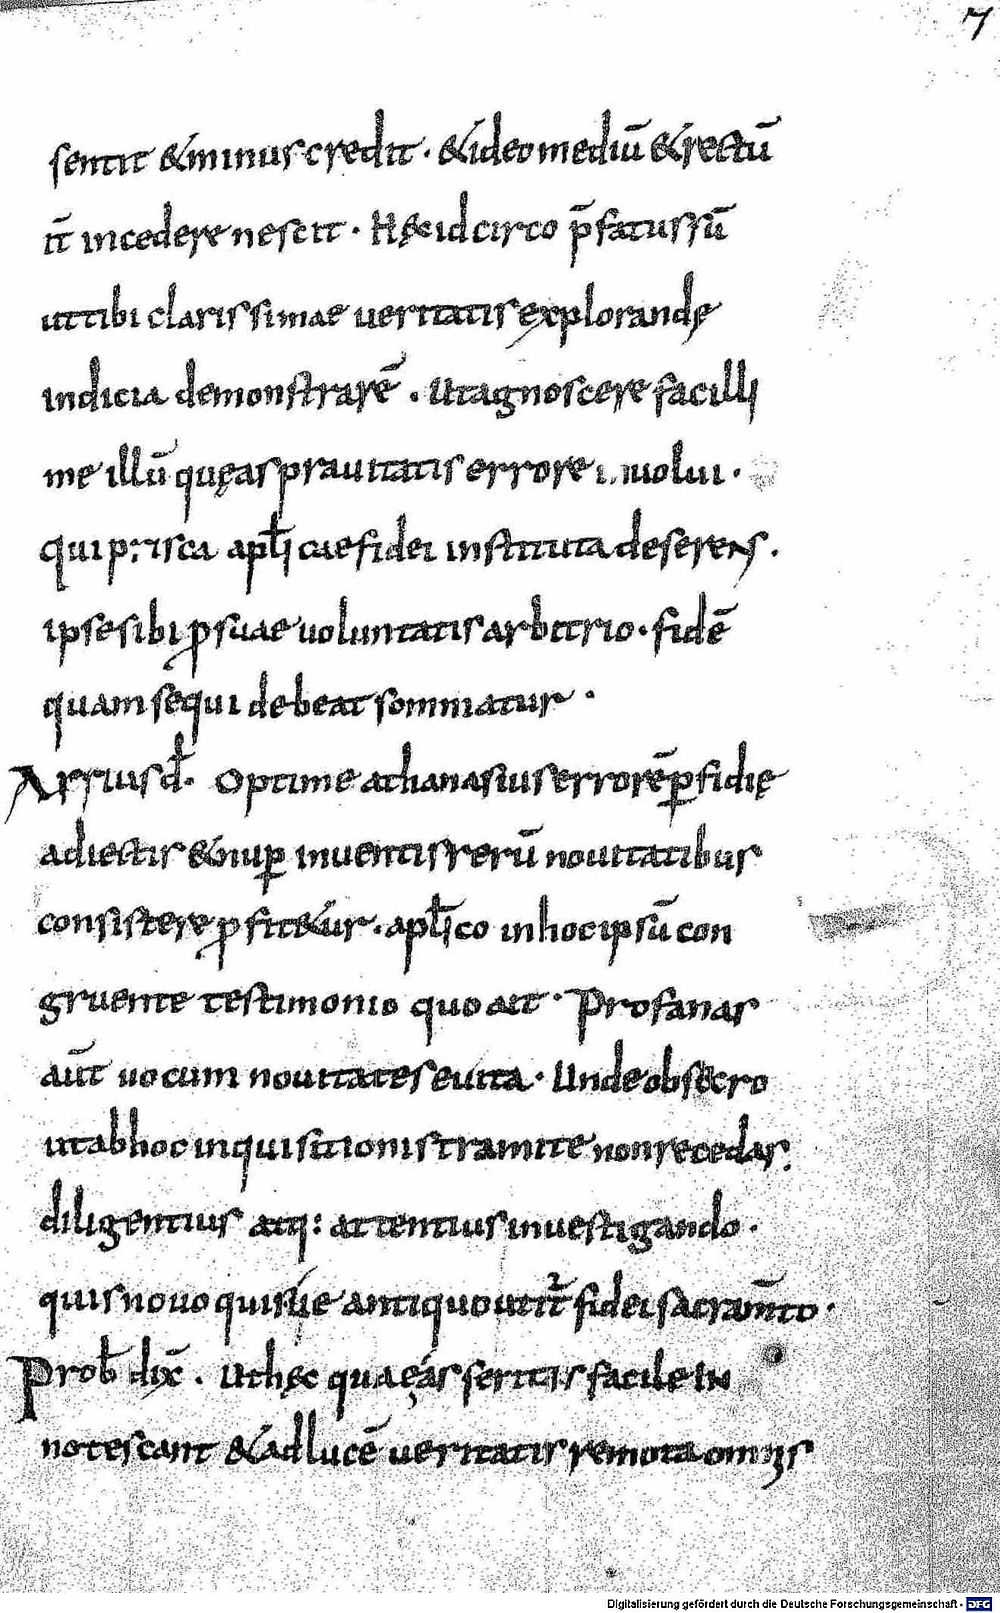 7
sentit & minus credit · & ideo mediū & rectū
iť incedere nescit · Hęc idcirco p̄fatus sū
ut tibi clarissimae ueritatis explorandę
indicia demonstrarē · Ut agnoscere facilli
me illū queas prauitatis errore inuolui ·
qui prisca apl̄icae fidei instituta deserens ·
ipse sibi ꝓ suae uoluntatis arbitrio · fidē
quam sequi debeat sommatur ·
Arrius d̄· Optime athanasius errorē ꝑfidię
adiectis & nuꝑ inuentis rerū nouitatibus
consistere ꝓfit&ur · apl̄ico in hoc ipsū con
gruente testimonio quo ait · Profanas
aūt uocum nouitates euita · Unde obsecro
ut ab hoc inquisitionis tramite non recedas ·
diligentius atq: attentius inuestigando ·
quis nouo quisue antiquo utit̄ fidei sacram̄to ·
Prob̄ dix̄ · Ut hęc quae asseritis facile in
notescant & ad lucē ueritatis remota omnis
Digitalisierung gefördert durch die Deutsche Forschungsgemeinschaft · DFG